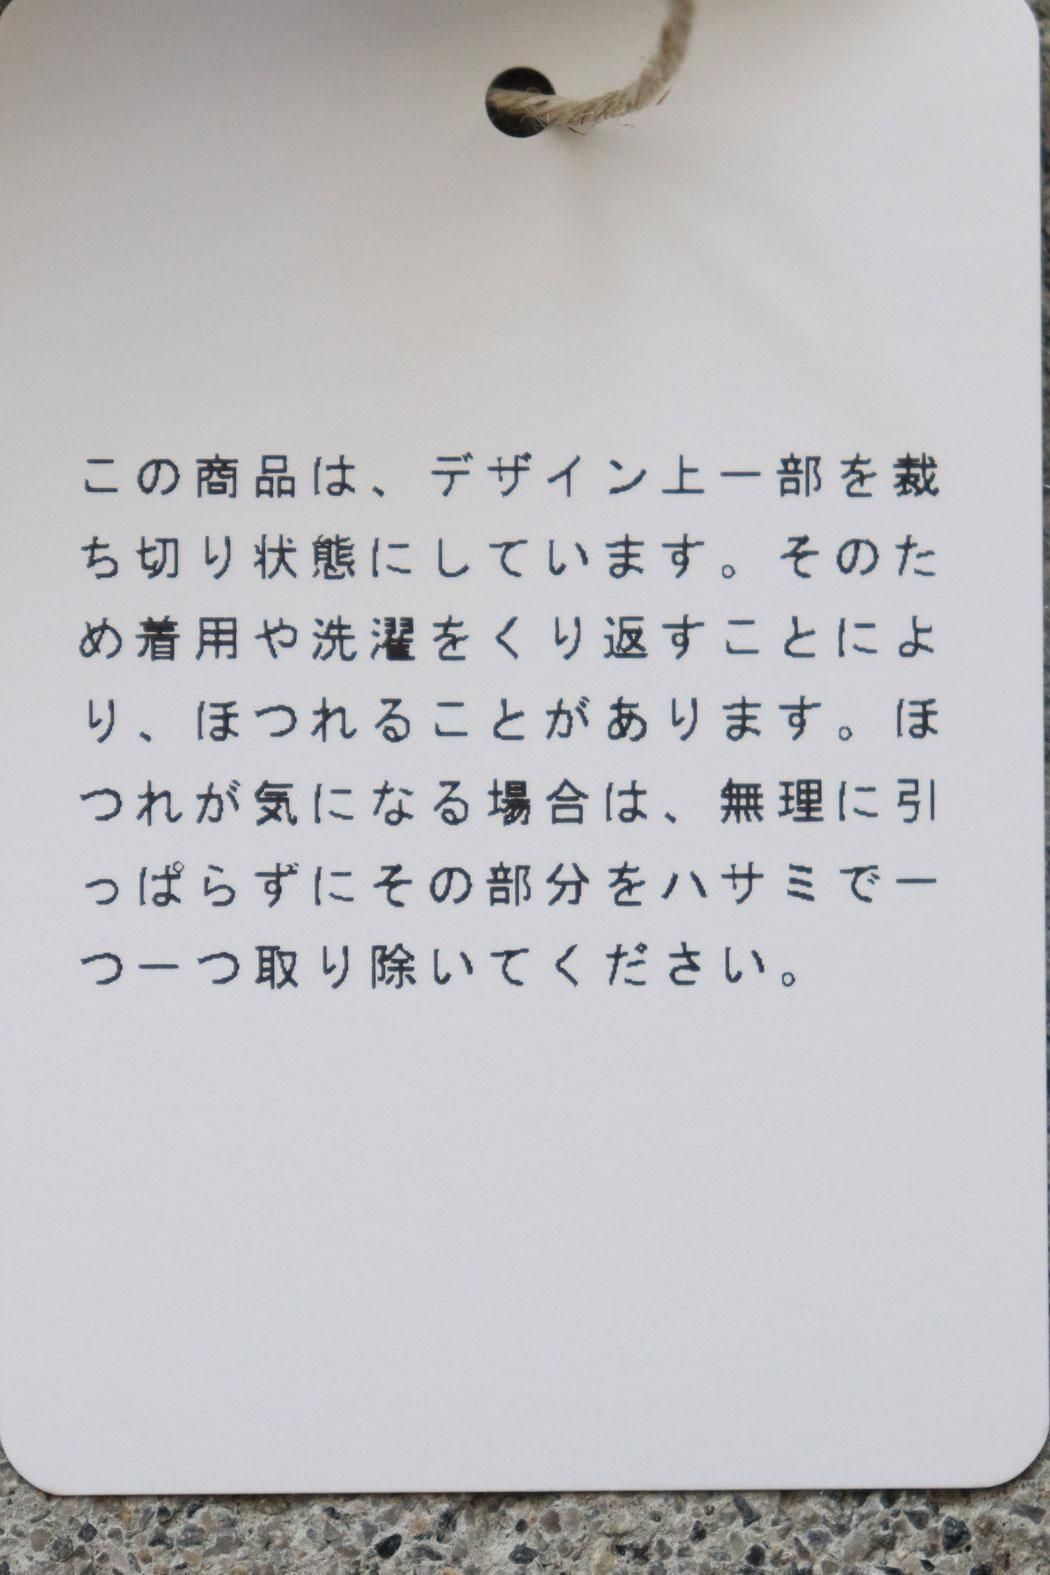 この商品は、デザイン上一部を裁
ち切り状態にしています。そのた
め着用や洗濯をくり返すことによ
り、ほつれることがあります。ほ
つれが気になる場合は、無理に引
っぱらずにその部分をハサミで一
つ一つ取り除いてください。